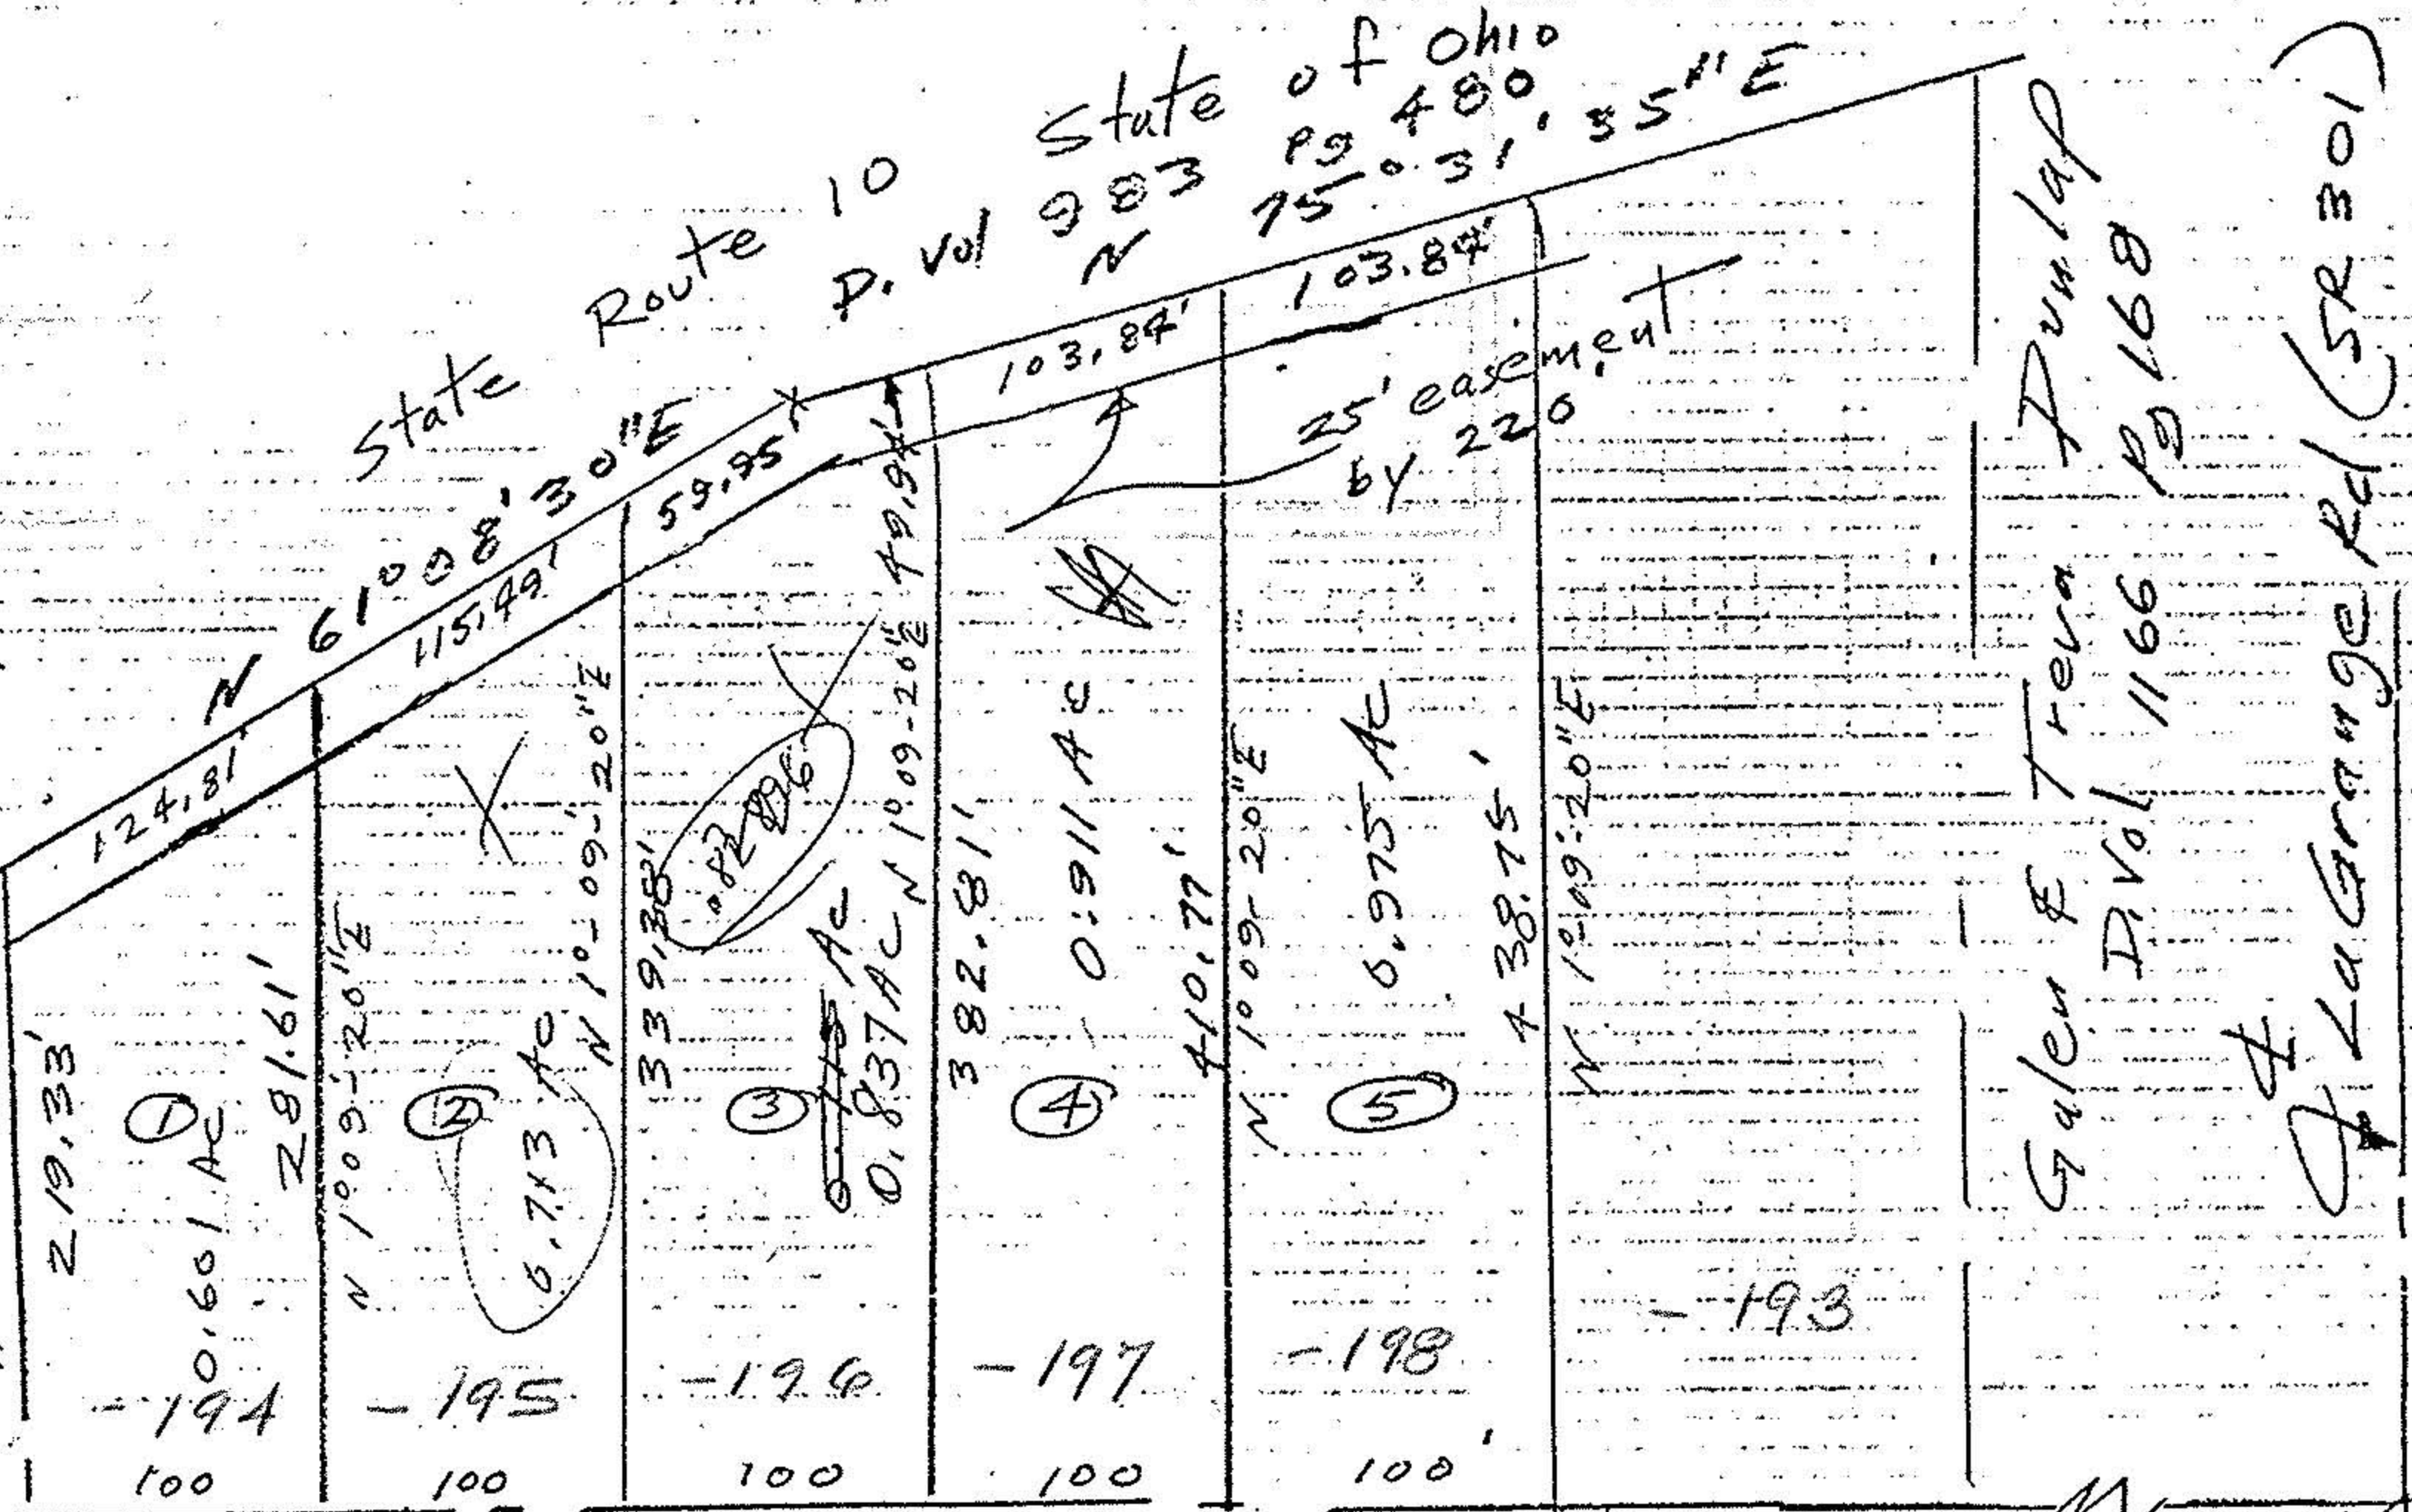 State Route 10 State of Ohio
D. Vol 983 Pg 480
N 75° 31' 35" E
N 61° 08' 30" E
124.81'
115.49'
59.95'
103.84'
103.84'
25' easement
by 220'
219.33'
①
0.601 Ac
281.61'
N 1° 09-20"E
②
0.713 Ac
N 1°-09'-20"E
339.38'
③
Ac
0.837 Ac
N 1° 09-20"E
382.81'
④
0.911 Ac
410.77'
N 1° 09-20"E
⑤
0.975 Ac
438.75'
N 1°-09'-20"E
Galen & Treva Dunlap
D. Vol 1166 Pg 168
LaGrange Rd (SR 301)
-194
-195
-196
-197
-198
-193
100
100
100
100
100'